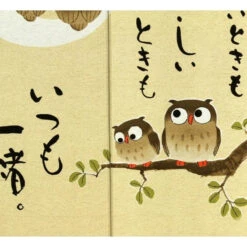 いどきも
しい
ときも
いつも
一緒。